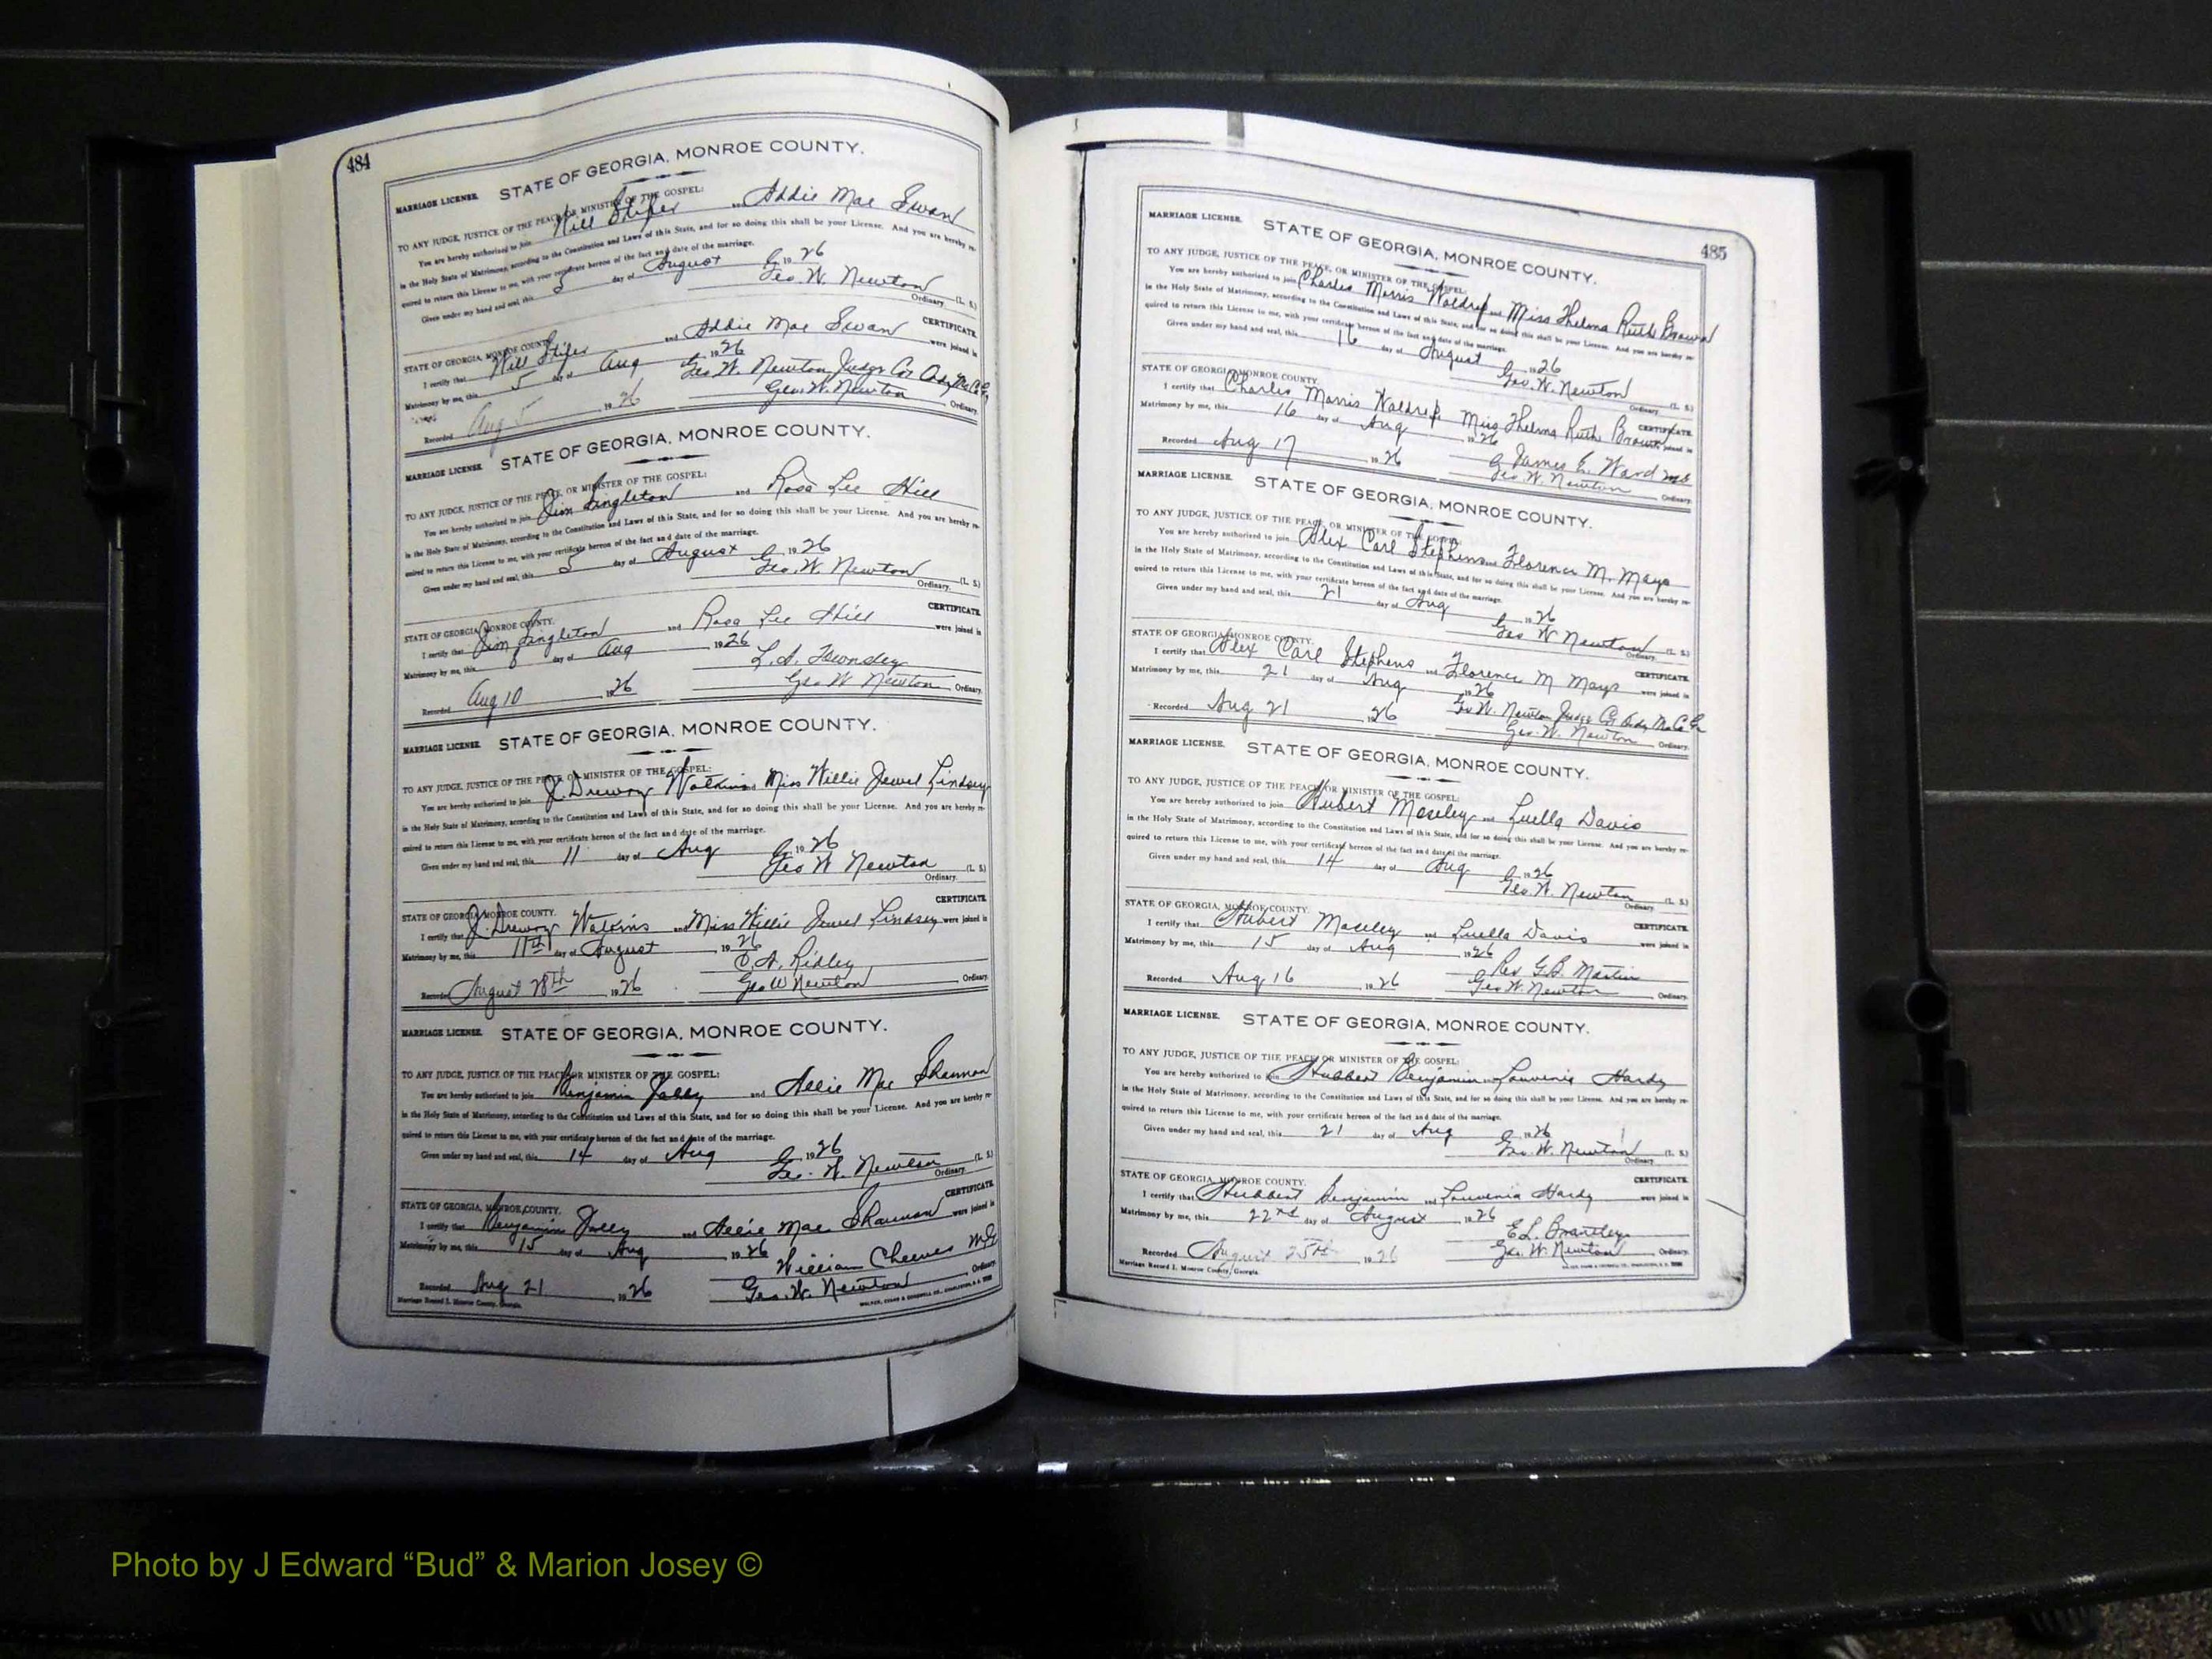 484
MARRIAGE LICENSE. STATE OF GEORGIA, MONROE COUNTY.
TO ANY JUDGE, JUSTICE OF THE PEACE, OR MINISTER OF THE GOSPEL:
You are hereby authorized to join Will and Addie Mae Swan
in the Holy State of Matrimony, according to the Constitution and Laws of this State, and for so doing this shall be your License. And you are hereby re-
quired to return this License to me, with your certificate hereon of the fact and date of the marriage.
Given under my hand and seal, this 5 day of August 1926
Geo. W. Newton (L. S.)
Ordinary.
CERTIFICATE.
STATE OF GEORGIA, MONROE COUNTY.
I certify that Will and Addie Mae Swan were joined in
Matrimony by me, this 5 day of Aug 1926
Geo W. Newton, Judge
Recorded Aug 5 1926 Geo. W. Newton Ordinary.
MARRIAGE LICENSE. STATE OF GEORGIA, MONROE COUNTY.
TO ANY JUDGE, JUSTICE OF THE PEACE, OR MINISTER OF THE GOSPEL:
You are hereby authorized to join Jim Singleton and Rosa Lee Hill
in the Holy State of Matrimony, according to the Constitution and Laws of this State, and for so doing this shall be your License. And you are hereby re-
quired to return this License to me, with your certificate hereon of the fact and date of the marriage.
Given under my hand and seal, this 5 day of August 1926
Geo. W. Newton (L. S.)
Ordinary.
CERTIFICATE.
STATE OF GEORGIA, MONROE COUNTY.
I certify that Jim Singleton and Rosa Lee Hill were joined in
Matrimony by me, this 8 day of Aug 1926
L. A. Townsley
Recorded Aug 10 1926 Geo W Newton Ordinary.
MARRIAGE LICENSE. STATE OF GEORGIA, MONROE COUNTY.
TO ANY JUDGE, JUSTICE OF THE PEACE, OR MINISTER OF THE GOSPEL:
You are hereby authorized to join J. Drewry Watkins Miss Willie Jewel Lindsey
in the Holy State of Matrimony, according to the Constitution and Laws of this State, and for so doing this shall be your License. And you are hereby re-
quired to return this License to me, with your certificate hereon of the fact and date of the marriage.
Given under my hand and seal, this 11 day of Aug 1926
Geo W Newton (L. S.)
Ordinary.
CERTIFICATE.
STATE OF GEORGIA, MONROE COUNTY.
I certify that J. Drewry Watkins and Miss Willie Jewel Lindsey were joined in
Matrimony by me, this 11th day of August 1926
Ridley
Recorded August 28th 1926 Geo W Newton Ordinary.
MARRIAGE LICENSE. STATE OF GEORGIA, MONROE COUNTY.
TO ANY JUDGE, JUSTICE OF THE PEACE, OR MINISTER OF THE GOSPEL:
You are hereby authorized to join Benjamin and Allie Mae Shannon
in the Holy State of Matrimony, according to the Constitution and Laws of this State, and for so doing this shall be your License. And you are hereby re-
quired to return this License to me, with your certificate hereon of the fact and date of the marriage.
Given under my hand and seal, this 14 day of Aug 1926
Geo. W. Newton (L. S.)
Ordinary.
CERTIFICATE.
STATE OF GEORGIA, MONROE COUNTY.
I certify that Benjamin and Allie Mae Shannon were joined in
Matrimony by me, this 15 day of Aug 1926
William Cheeves M.G.
Recorded Aug 21 1926 Geo. W. Newton Ordinary.
Marriage Record I. Monroe County, Georgia.
485
MARRIAGE LICENSE. STATE OF GEORGIA, MONROE COUNTY.
TO ANY JUDGE, JUSTICE OF THE PEACE, OR MINISTER OF THE GOSPEL:
You are hereby authorized to join Charles Morris Waldrep and Miss Thelma Ruth Brown
in the Holy State of Matrimony, according to the Constitution and Laws of this State, and for so doing this shall be your License. And you are hereby re-
quired to return this License to me, with your certificate hereon of the fact and date of the marriage.
Given under my hand and seal, this 16 day of August 1926
Geo. W. Newton (L. S.)
Ordinary.
STATE OF GEORGIA, MONROE COUNTY.
CERTIFICATE.
I certify that Charles Morris Waldrep Miss Thelma Ruth Brown were joined in
Matrimony by me, this 16 day of Aug 1926
James E. Ward MG
Recorded Aug 17 1926 Geo. W. Newton Ordinary.
MARRIAGE LICENSE. STATE OF GEORGIA, MONROE COUNTY.
TO ANY JUDGE, JUSTICE OF THE PEACE, OR MINISTER OF THE GOSPEL:
You are hereby authorized to join Alex Carl Stephens and Florence M. Mays
in the Holy State of Matrimony, according to the Constitution and Laws of this State, and for so doing this shall be your License. And you are hereby re-
quired to return this License to me, with your certificate hereon of the fact and date of the marriage.
Given under my hand and seal, this 21 day of Aug 1926
Geo W Newton (L. S.)
Ordinary.
STATE OF GEORGIA, MONROE COUNTY.
CERTIFICATE.
I certify that Alex Carl Stephens and Florence M Mays were joined in
Matrimony by me, this 21 day of Aug 1926
Geo W. Newton Judge
Recorded Aug 21 1926 Geo. W. Newton Ordinary.
MARRIAGE LICENSE. STATE OF GEORGIA, MONROE COUNTY.
TO ANY JUDGE, JUSTICE OF THE PEACE, OR MINISTER OF THE GOSPEL:
You are hereby authorized to join Hubert Moseley and Luella Davis
in the Holy State of Matrimony, according to the Constitution and Laws of this State, and for so doing this shall be your License. And you are hereby re-
quired to return this License to me, with your certificate hereon of the fact and date of the marriage.
Given under my hand and seal, this 14 day of Aug 1926
Geo. W. Newton (L. S.)
Ordinary.
STATE OF GEORGIA, MONROE COUNTY.
CERTIFICATE.
I certify that Hubert Moseley and Luella Davis were joined in
Matrimony by me, this 15 day of Aug 1926
Rev G.B. Martin
Recorded Aug 16 1926 Geo W. Newton Ordinary.
MARRIAGE LICENSE. STATE OF GEORGIA, MONROE COUNTY.
TO ANY JUDGE, JUSTICE OF THE PEACE, OR MINISTER OF THE GOSPEL:
You are hereby authorized to join Hubbert Benjamin and Louvenia Hardy
in the Holy State of Matrimony, according to the Constitution and Laws of this State, and for so doing this shall be your License. And you are hereby re-
quired to return this License to me, with your certificate hereon of the fact and date of the marriage.
Given under my hand and seal, this 21 day of Aug 1926
Geo. W. Newton (L. S.)
Ordinary.
STATE OF GEORGIA, MONROE COUNTY.
CERTIFICATE.
I certify that Hubbert Benjamin and Louvenia Hardy were joined in
Matrimony by me, this 22nd day of August 1926
E.L. Brantley
Recorded August 25th 1926 Geo. W. Newton Ordinary.
Marriage Record I. Monroe County, Georgia.
Photo by J Edward “Bud” & Marion Josey ©